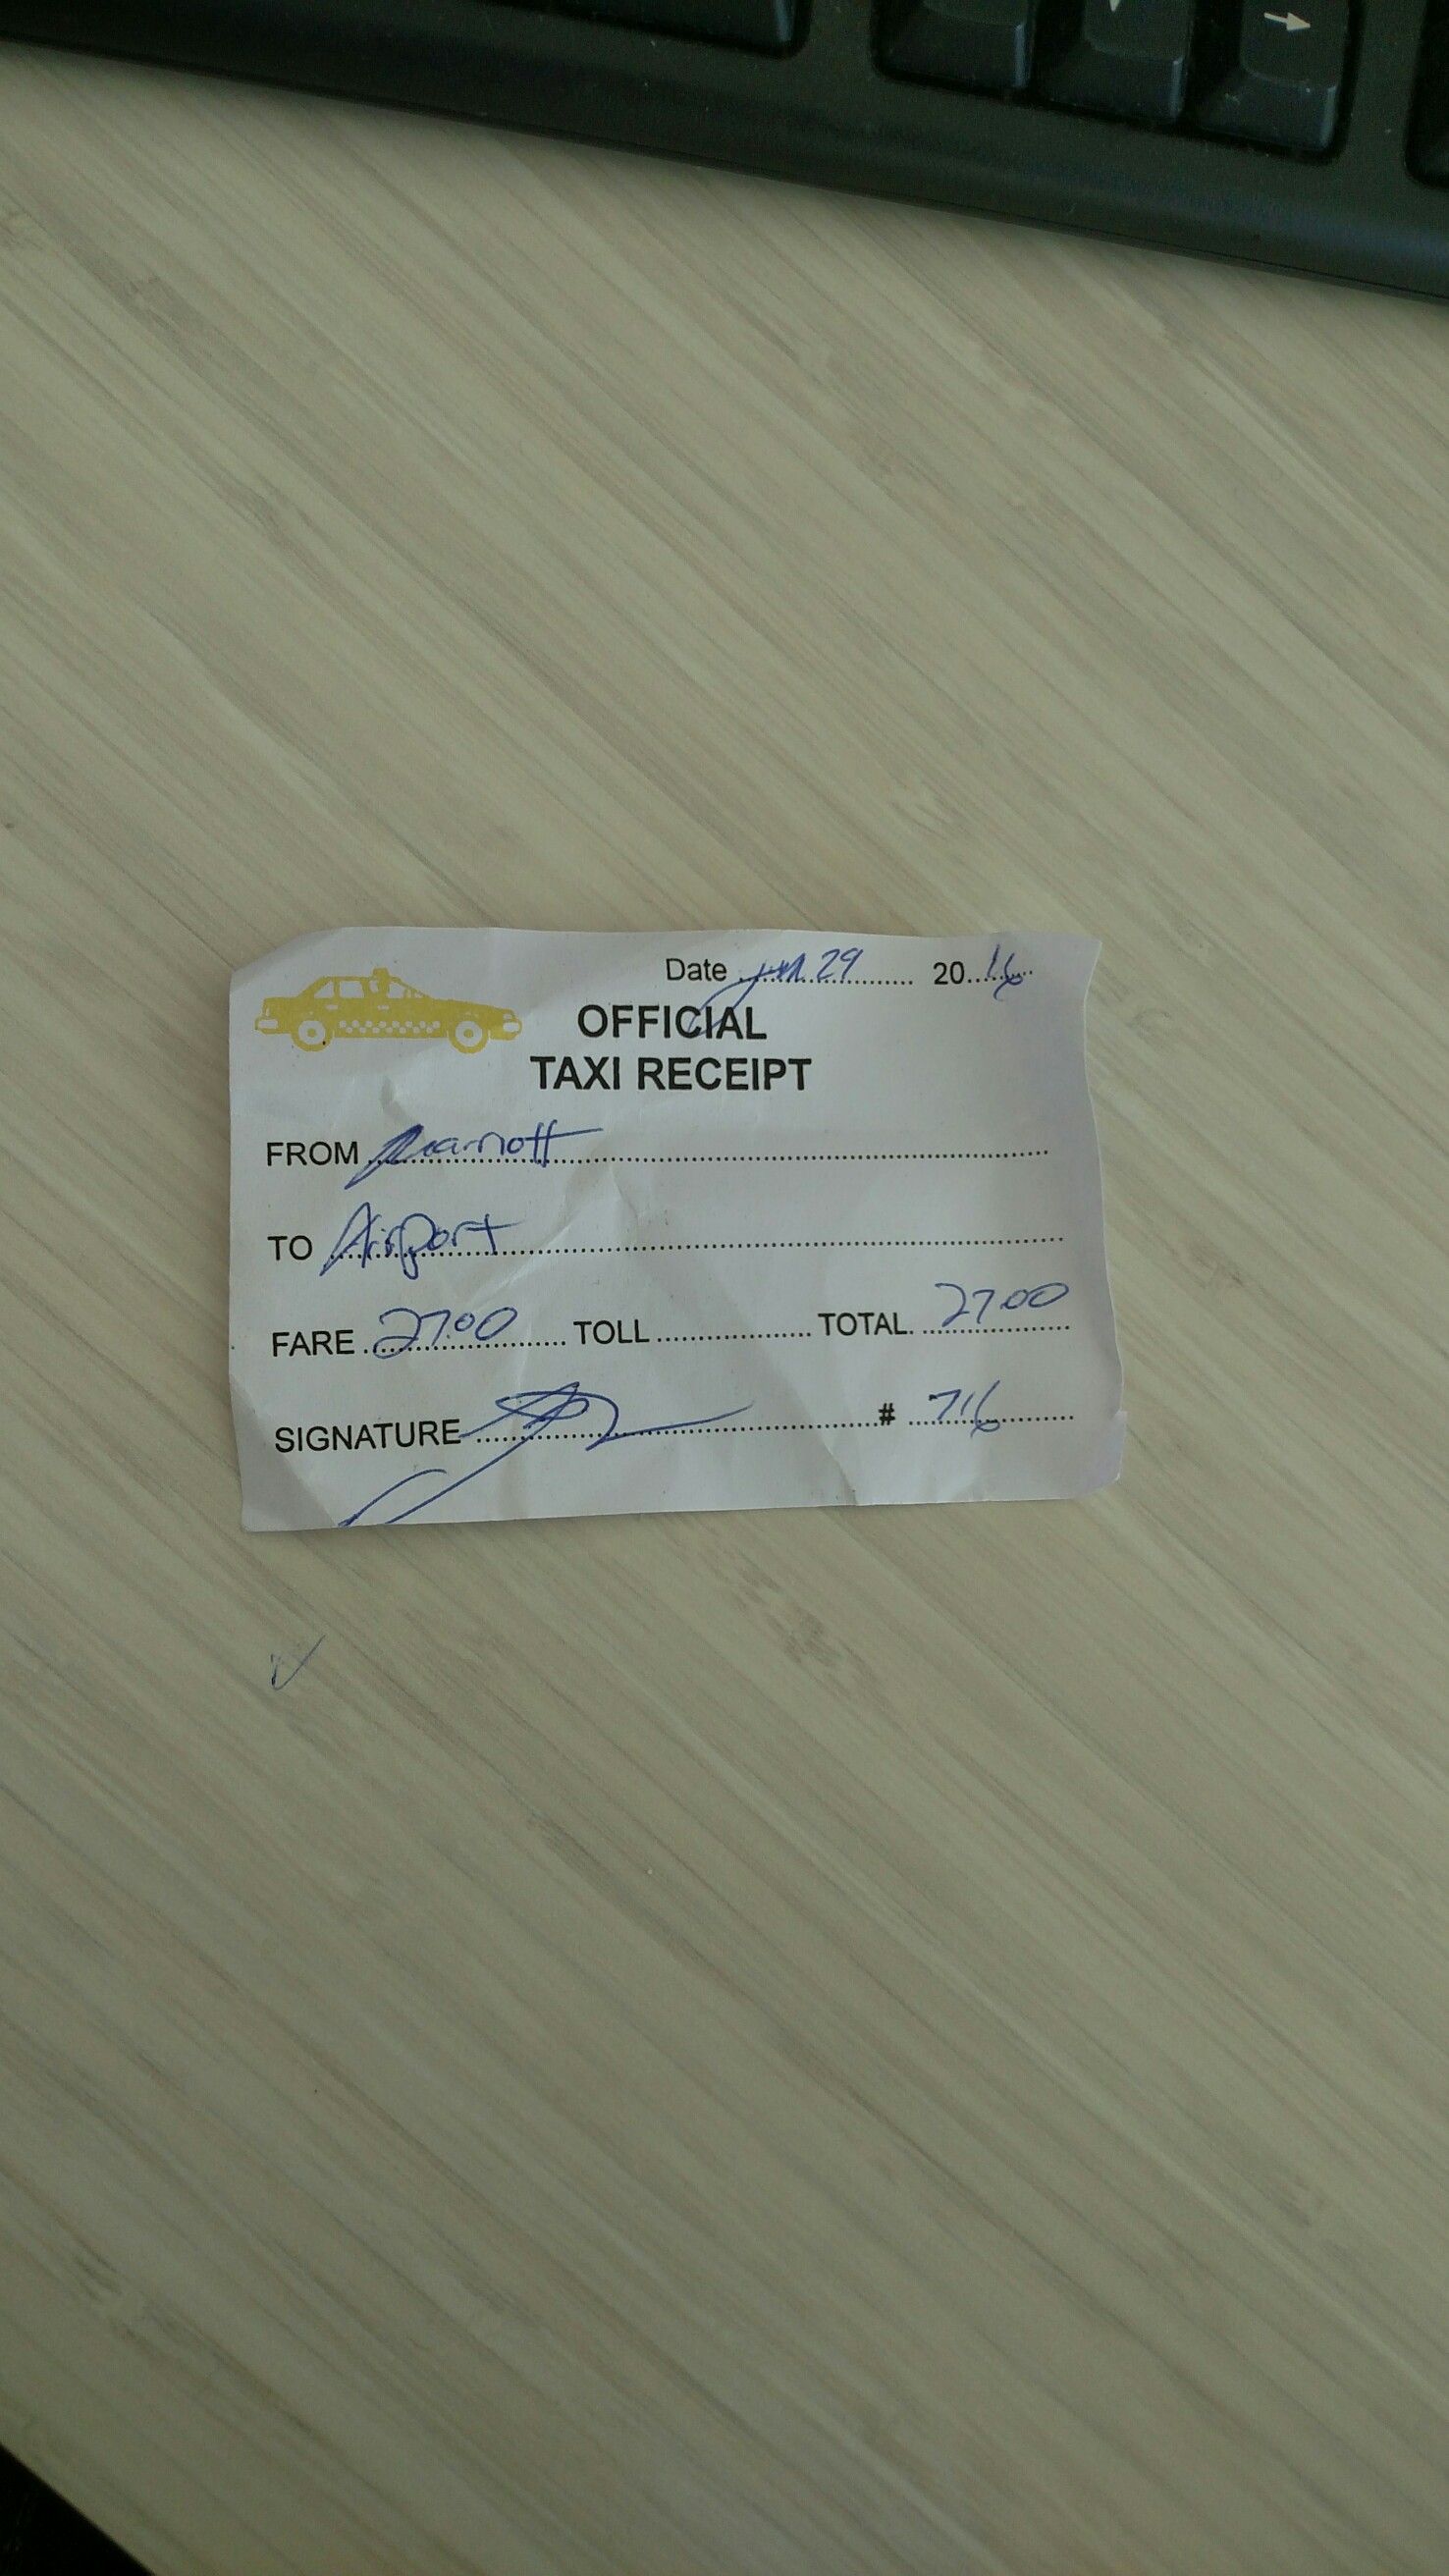 Date 29 2016
OFFICIAL
TAXI RECEIPT
FROM Marriott
TO Airport
FARE 27.00 TOLL TOTAL 27.00
SIGNATURE # 716